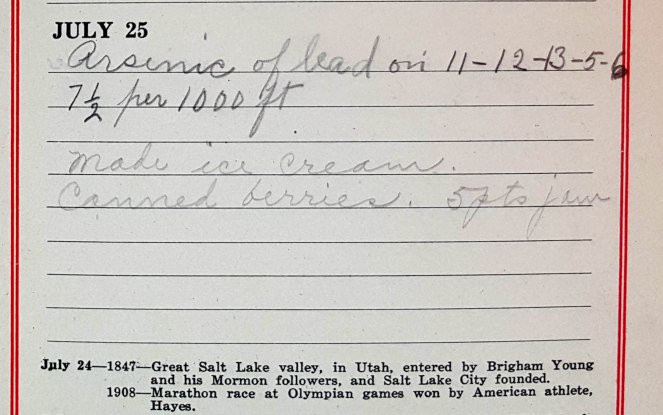 JULY 25
Arsenic of lead on 11-12-13-5-6
7½ per 1000 ft
Made ice cream.
Canned berries. 5pts jam
July 24—1847—Great Salt Lake valley, in Utah, entered by Brigham Young
and his Mormon followers, and Salt Lake City founded.
1908—Marathon race at Olympian games won by American athlete,
Hayes.